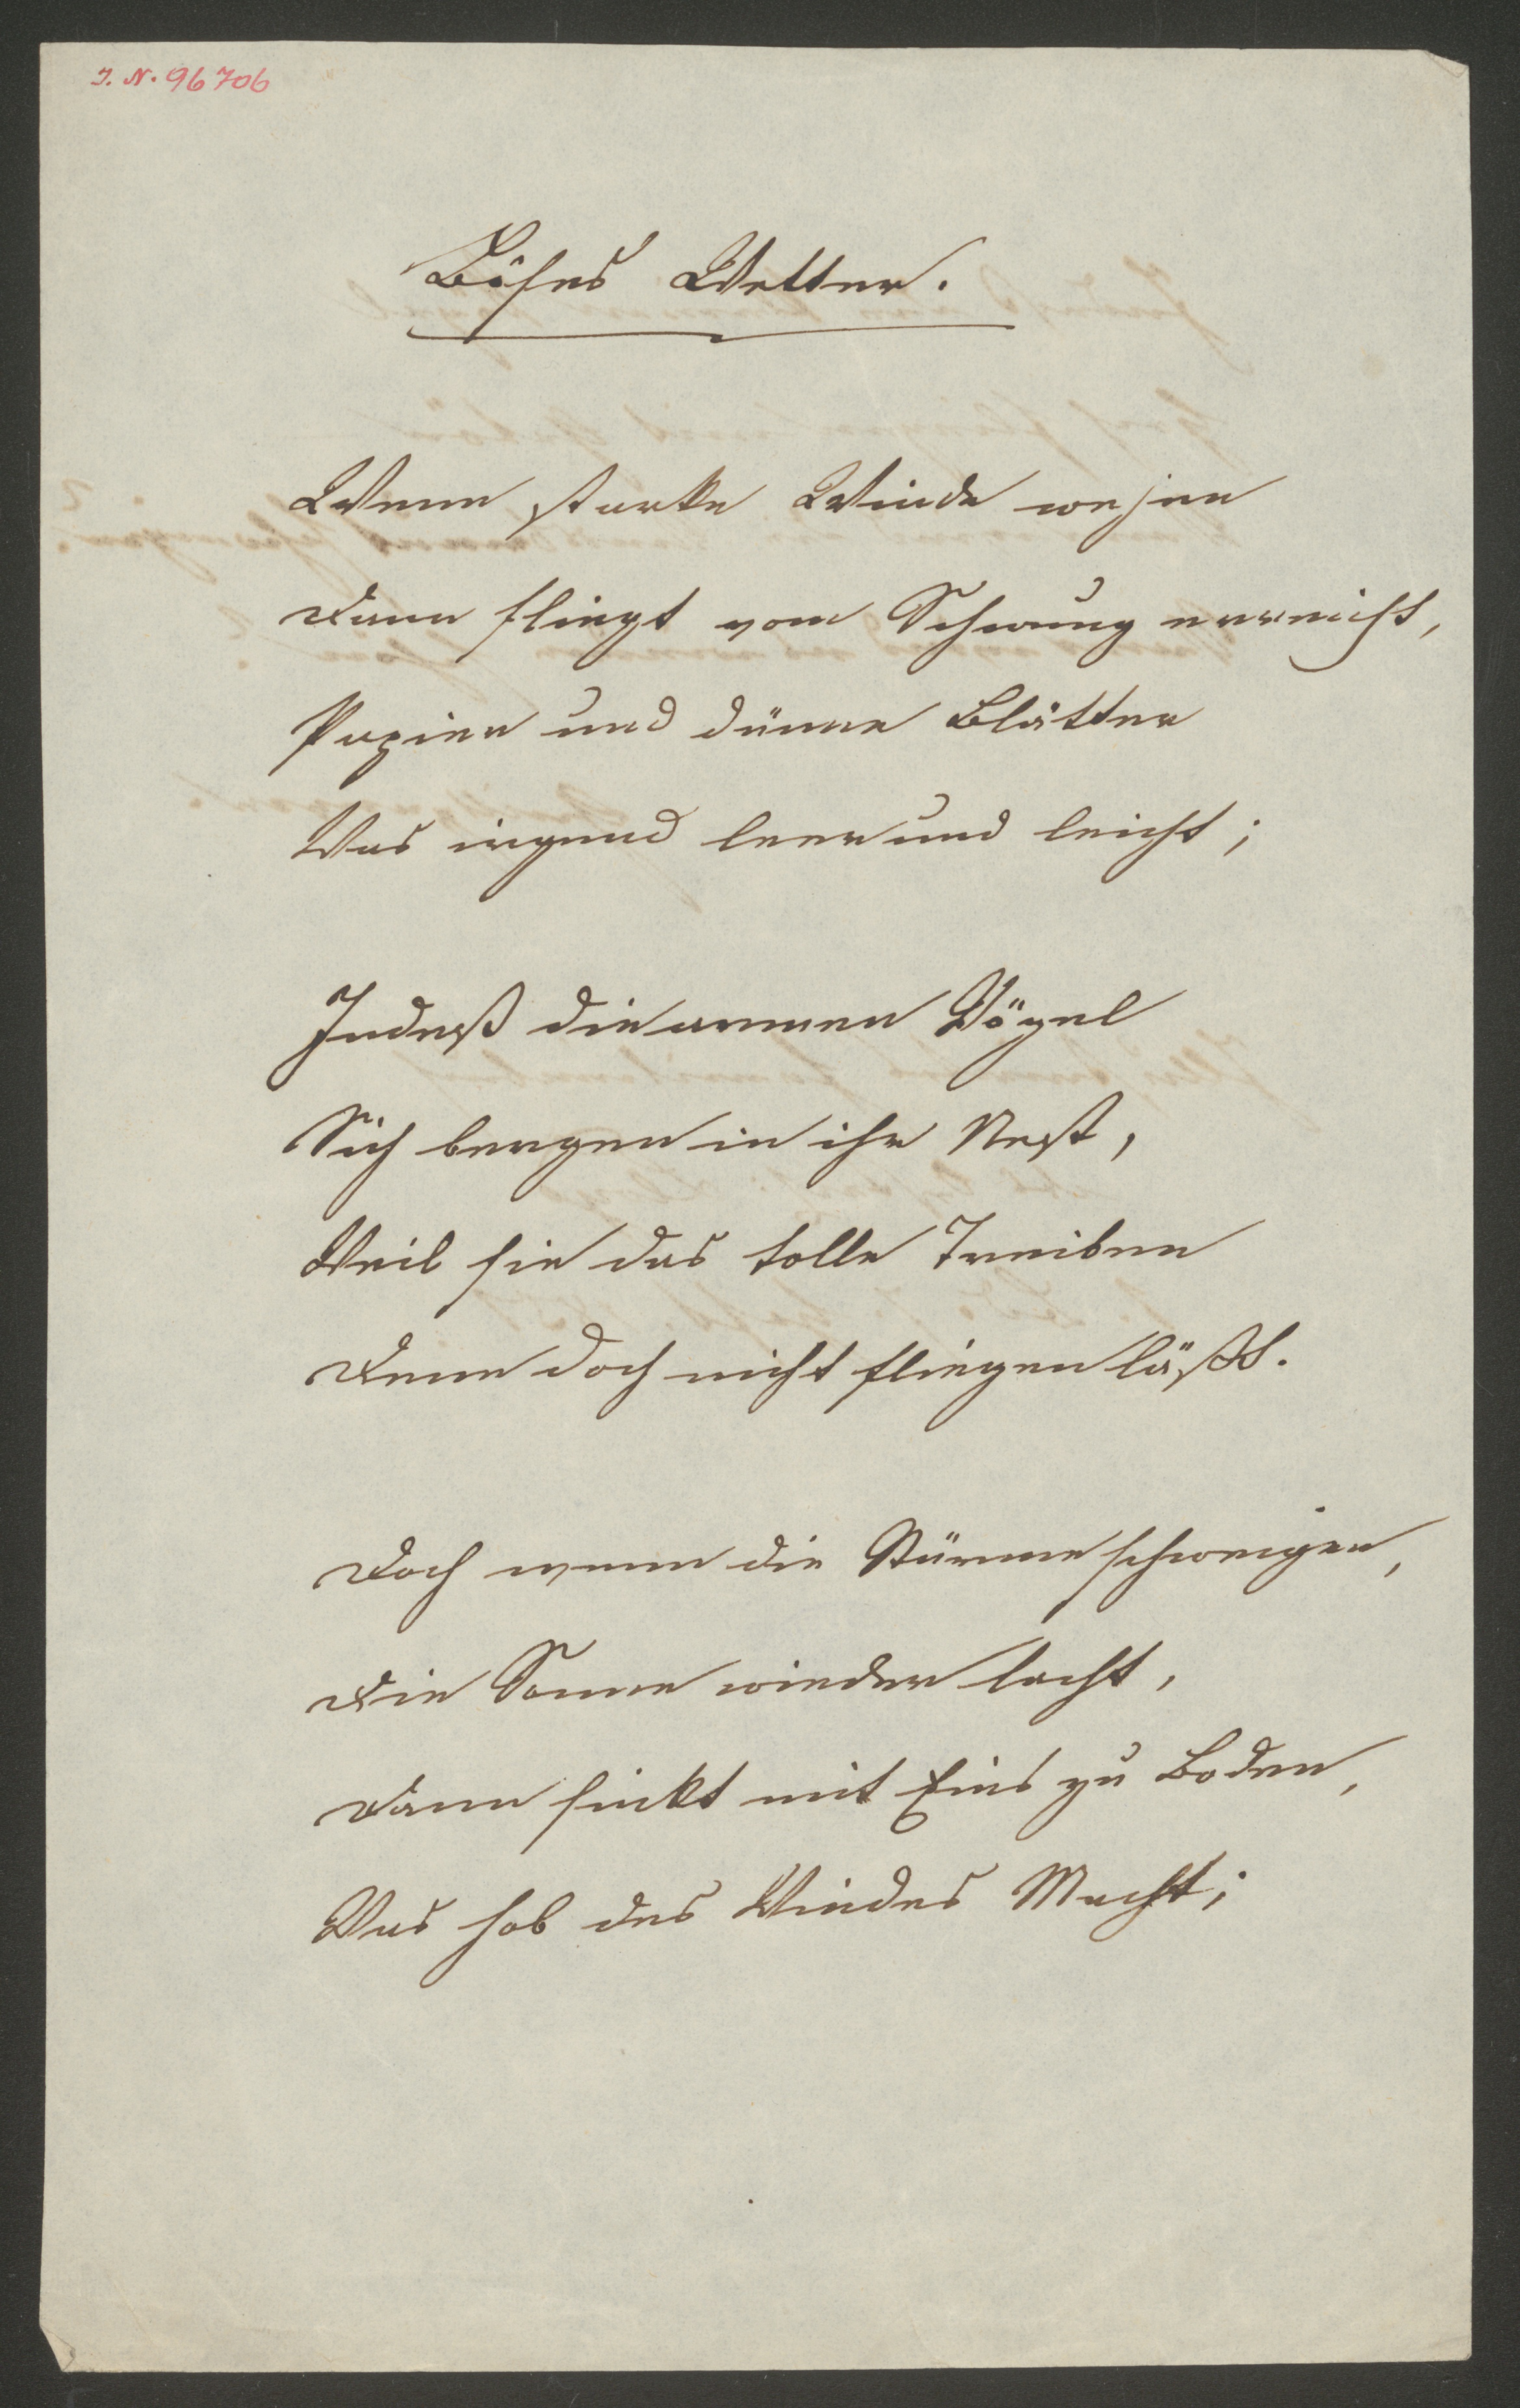 I. N. 96706
Böses Wetter.
Wenn starke Winde wehen
Dann fliegt vom Schwung erreicht,
Papier und dünne Blätter
Was irgend leer und leicht;
Indeß die armen Vögel
Sich bergen in ihr Nest,
Weil sie das tolle Treiben
Denn doch nicht fliegen läßt.
Doch wenn die Stürme schweigen,
Die Sonne wieder lacht,
Dann sinkt mit Eins zu Boden,
Was hob des Windes Macht;